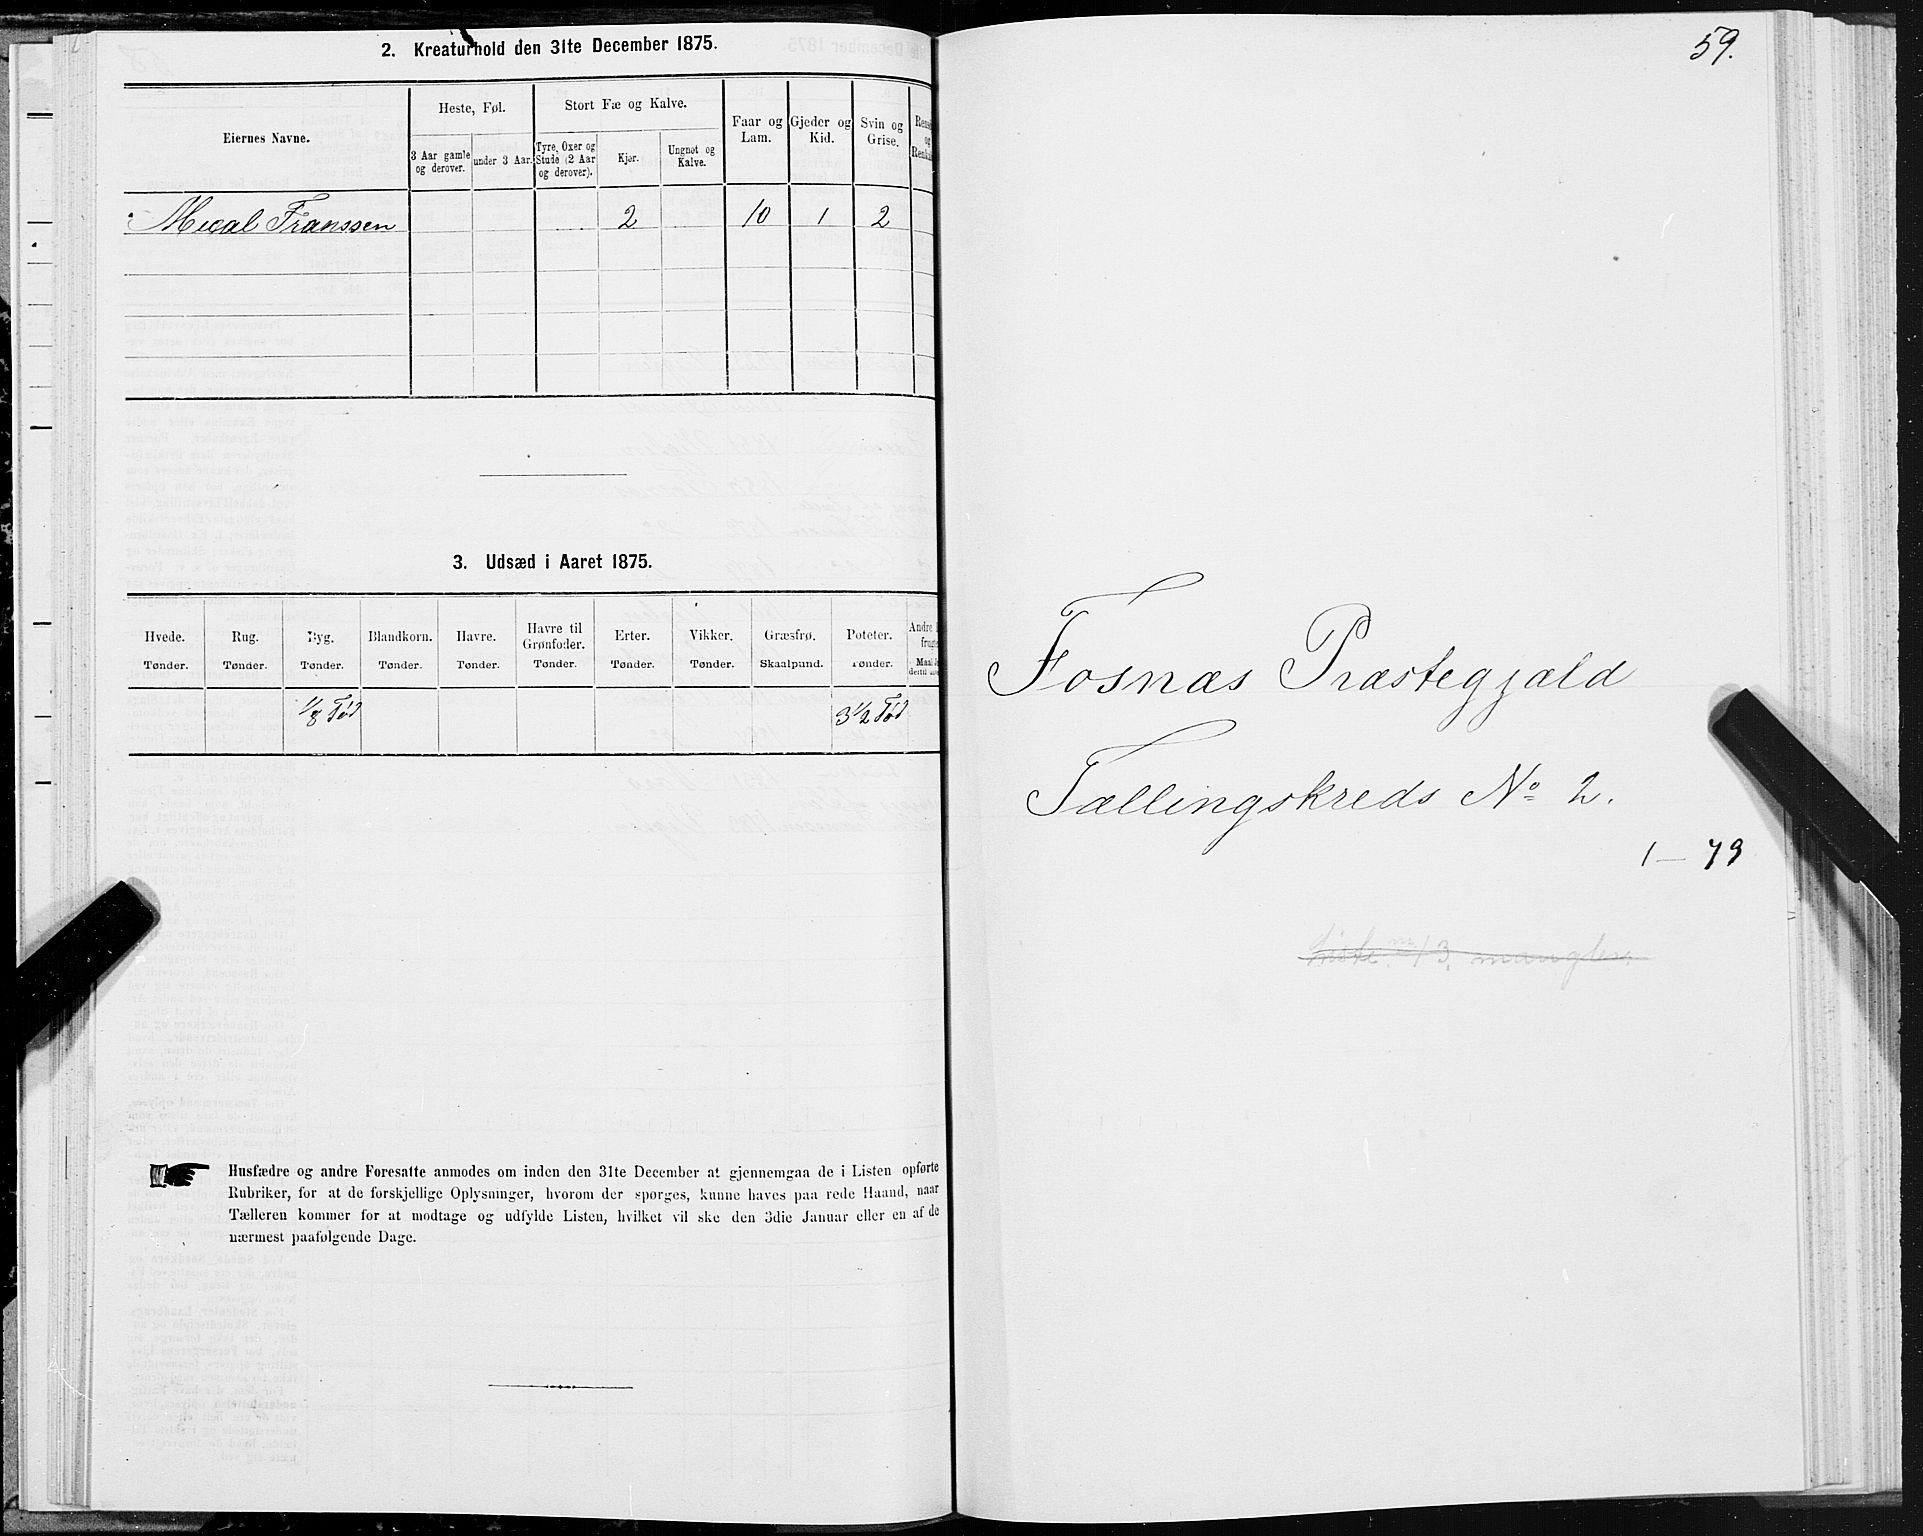 2. Kreaturhold den 31te December 1875.
Eiernes Navne.
Heste, Føl.
Stort Fæ og Kalve.
Faar og Lam.
Gjeder og Kid.
Svin og Grise.
3 Aar gamle og derover.
under 3 Aar.
Tyre, Oxer og Stude (2 Aar og derover).
Kjør.
Ungnøt og Kalve.
Franssen 2 10 1 2
3. Udsæd i Aaret 1875.
Hvede. Rug. Byg. Blandkorn. Havre. Havre til Grønfoder. Erter. Vikker. Græsfrø. Poteter. Andre
Tønder. Tønder. Tønder. Tønder. Tønder. Tønder. Tønder. Tønder. Skaalpund. Tønder.
1/8 Tød 3 1/2 Tød
Husfædre og andre Foresatte anmodes om inden den 31te December at gjennemgaa de i Listen opførte
Rubriker, for at de forskjellige Oplysninger, hvorom der spørges, kunne haves paa rede Haand, naar
Tælleren kommer for at modtage og udfylde Listen, hvilket vil ske den 3die Januar eller en af de
nærmest paafølgende Dage.
59.
Fosnæs Præstegjæld
Tællingskreds No 2.
1-73